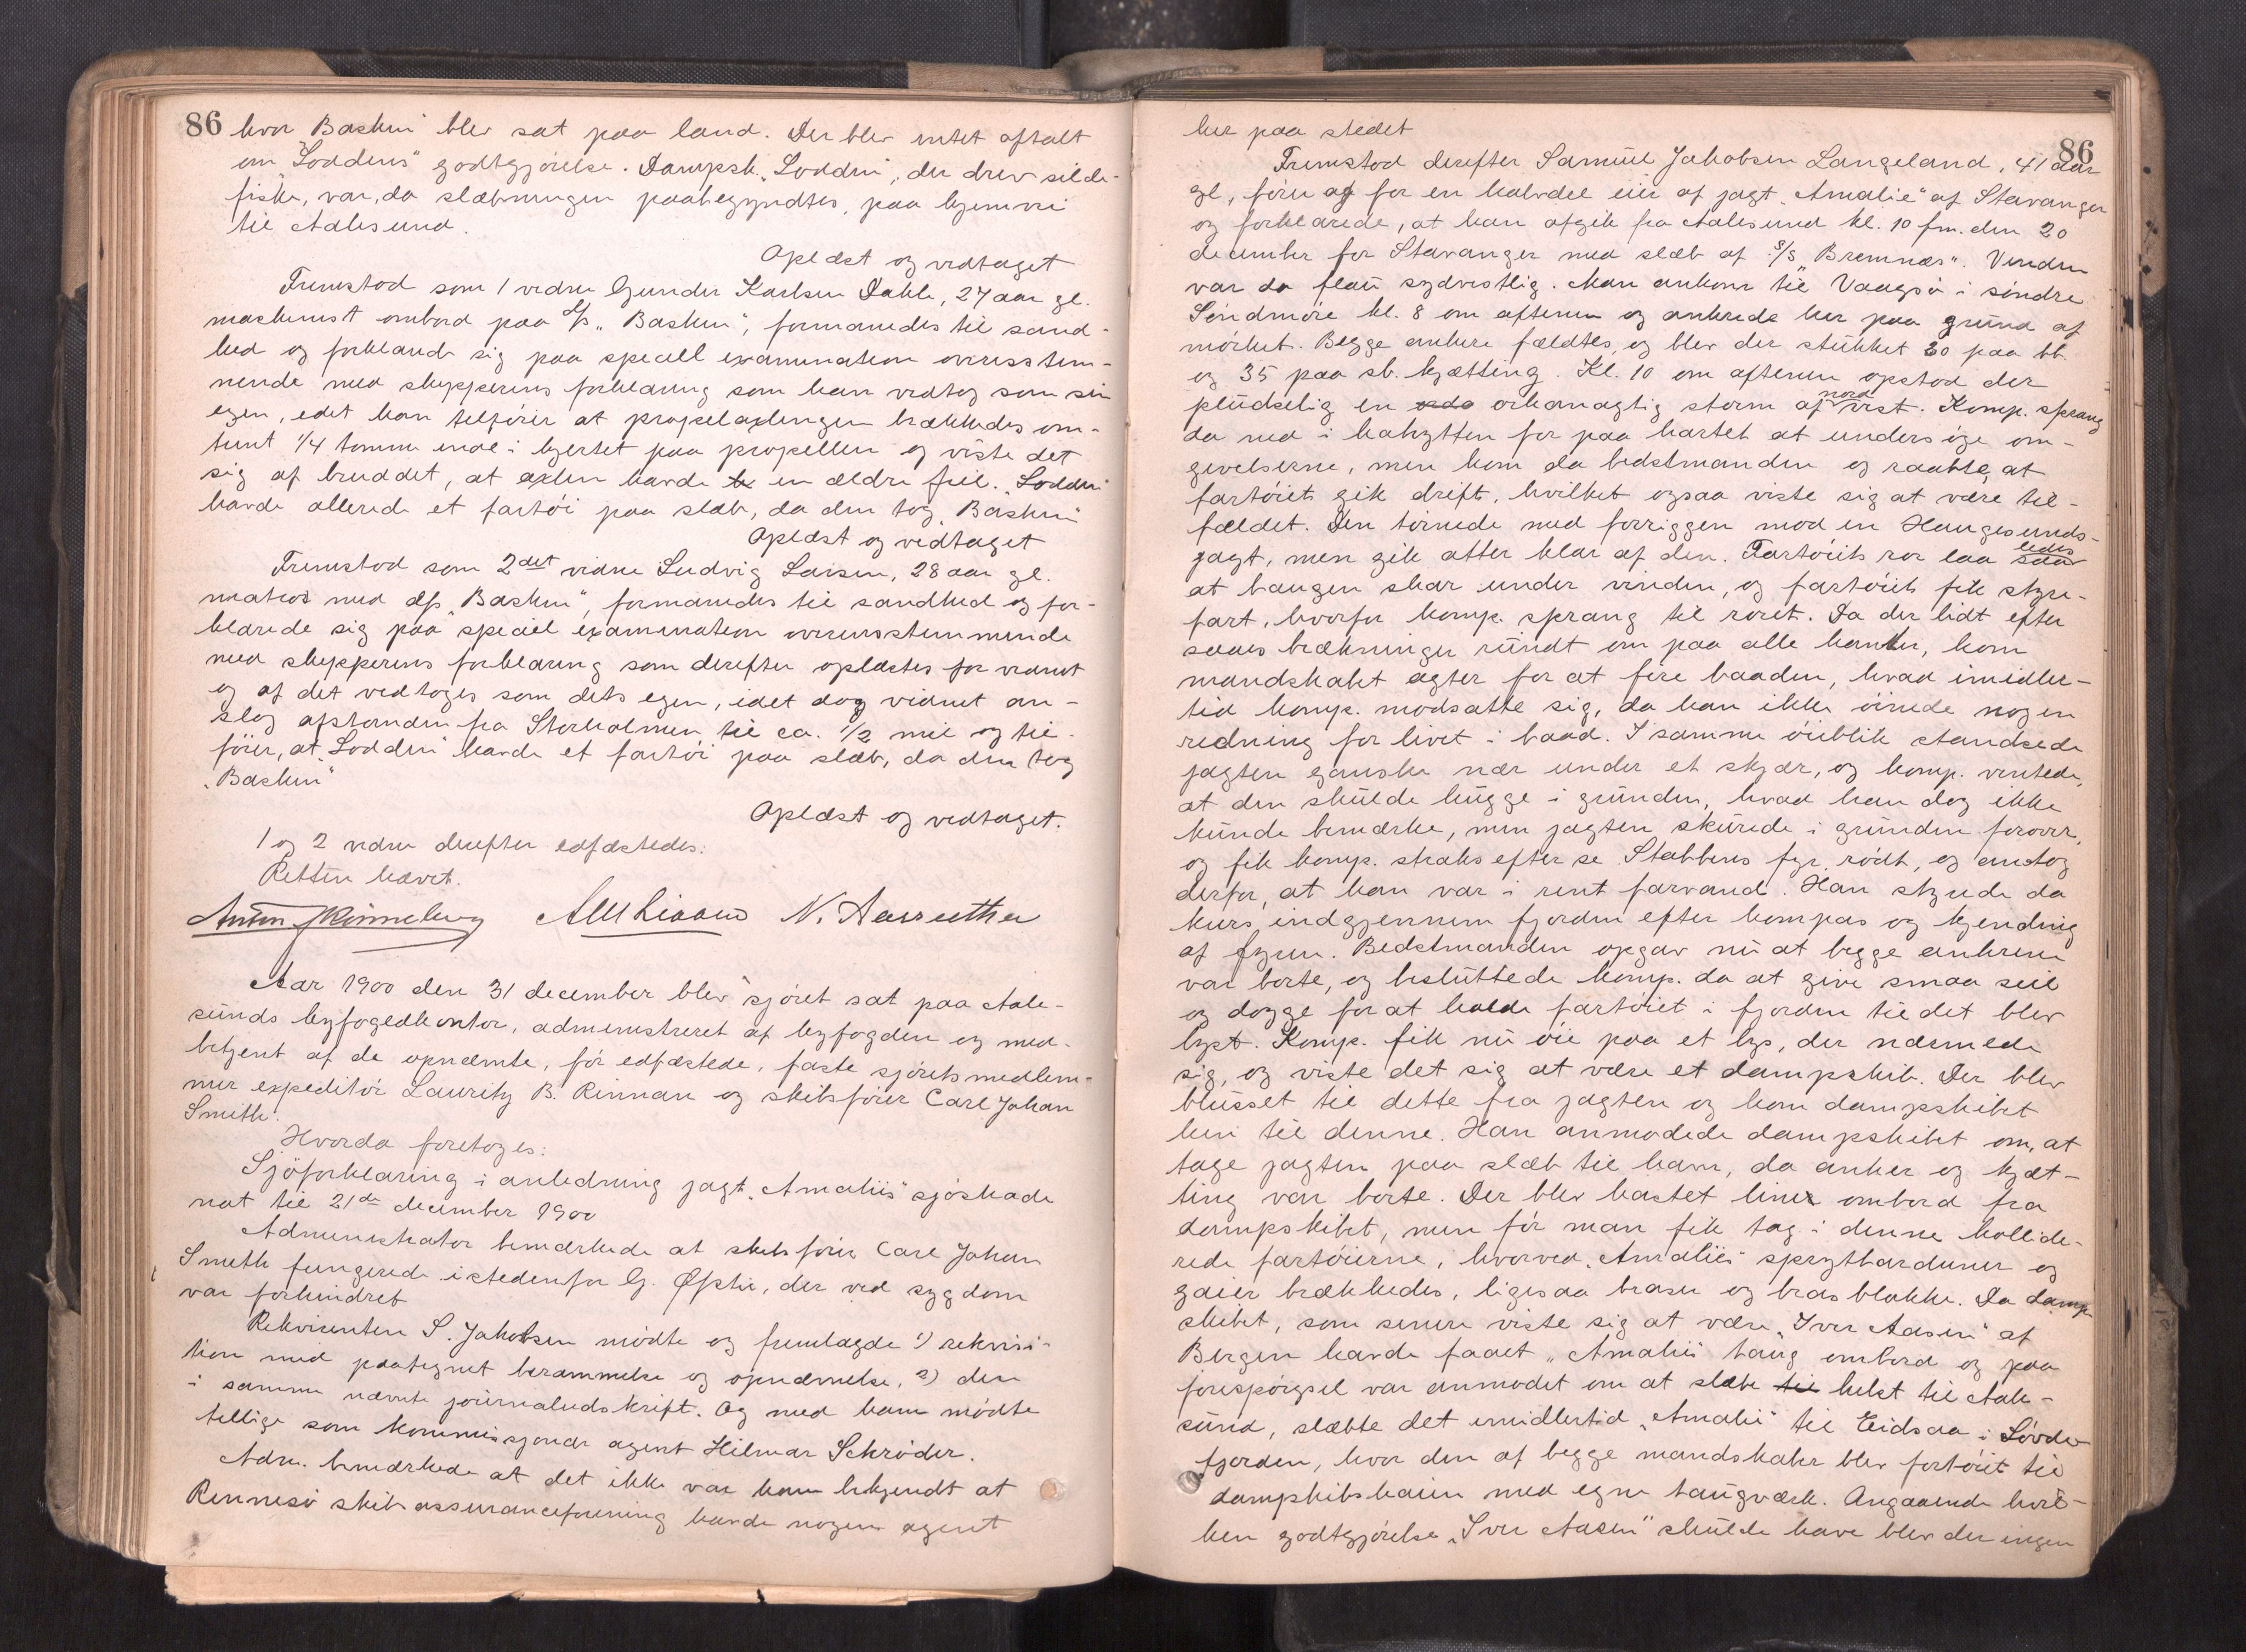 86 hvor "Baskin" blev sat paa land. Der blev intet aftalt
om "Loddens" godtgjørelse. Dampsk. "Lodden", der drev silde-
fiske, var, da slæbningen paabegyndtes, paa hjemvei
til Aalesund.
Oplæst og vedtaget
Fremstod som 1 vidne Gunder Karlsen Dahle, 27 aar gl.
maskinist ombord paa d/s "Baskin", formanedes til sand-
hed og forklared sig paa speciell examination overensstem-
mende med skipperens forklaring som han vedtog som sin
egen, idet han tilføier at propelaxlingen brækkedes om-
trent 1/4 tomme inde i hjertet paa propellen og viste det
sig af bruddet, at axlen havde en ældre feil. "Lodden"
havde allerede et fartøi paa slæb, da den tog "Baskin"
Oplæst og vedtaget
Fremstod som 2det vidne Ludvig Larsen, 28 aar gl.
matros med d/s "Baskin", formanedes til sandhed og for-
klarede sig paa speciel examination overensstemmende
med skipperens forklaring som derefter oplæstes for vidnet
og af det vedtoges som dets egen, idet dog vidnet an-
slog afstanden fra Storholmen til ca. 1/2 mil og til-
føier, at "Lodden" havde et fartøi paa slæb, da den tog
"Baskin"
Oplæst og vedtaget.
1 og 2 vidne derefter edfæstedes.
Retten hævet.
Anton J Rønneberg N. Aarsether
Aar 1900 den 31 december blev sjøret sat paa Aale-
sunds byfogedkontor, administreret af byfogden og med-
betjent af de opnævnte, før edfæstede, faste sjøretsmedlem-
mer expeditør Lauritz B. Rinnan og skibsfører Carl Johan
Smith.
Hvorda foretoges:
Sjøforklaring i anledning jagt "Amalies" sjøskade
nat til 21de december 1900
Administrator bemærkede at skibsfører Carl Johan
Smith fungerede istedenfor G. Øfsti, der ved sygdom
var forhindret
Rekvirenten S. Jakobsen mødte og fremlagde 1) rekvisi-
tion med paategnet berammelse og opnævnelse, 2) den
i samme nævnte journaludskrift. Og med ham mødte
tillige som kommissjonær agent Hilmar Schrøder.
Adm. bemærkede at det ikke var ham bekjendt at
Rennesø skibsassuranceforening havde nogen agent
her paa stedet
86
Fremstod derefter Samuel Jakobsen Langeland, 41 aar
gl, fører af for en halvdel eier af jagt "Amalie" af Stavanger
og forklarede, at han afgik fra Aalesund kl. 10 fm. den 20
december for Stavanger med slæb af S/S "Bremnæs". Vinden
var da flau sydvestlig. Man ankom til Vaagsø i søndre
Søndmøre kl. 8 om aftenen og ankrede her paa grund af
mørket. Begge ankere fældtes, og blev der stukket 30 paa bb.
og 35 paa sb. kjætting. Kl. 10 om aftenen opstod der
pludselig en orkanagtig storm af nordvest. Komp. sprang
da ned i kahytten for paa kartet at undersøge om-
givelserne, men kom da bedstmanden og raabte, at
fartøiet gik drift, hvilket ogsaa viste sig at være til-
fældet. Den tørnede med forriggen mod en Haugesunds-
jagt, men gik atter klar af den. Fartøiets ror laa saaledes
at baugen skar under vinden, og fartøiet fik styre-
fart, hvorfor komp. sprang til roret. Da der lidt efter
saaes brækninger rundt om paa alle kanter, kom
mandskabet agter for at fire baaden, hvad imidler-
tid komp. modsatte sig, da han ikke øinede nogen
redning for livet i baad. I samme øieblik standsede
jagten ganske nær under et skjær, og komp. ventede,
at den skulde hugge i grunden, hvad han dog ikke
kunde bemærke, men jagten skurede i grunden forover,
og fik komp. straks efter se Stabbens fyr rødt, og antog
derfor, at han var i rent farvand. Han styrede da
kurs indgjennem fjorden efter kompas og kjending
af fyrene. Bedstmanden opgav nu at begge ankrene
var borte, og besluttede komp. da at give smaa seil
og dogge for at holde fartøiet i fjorden til det blev
lyst. Komp. fik nu øie paa et lys, der nærmede
sig, og viste det sig at være et dampskib. Der blev
blusset til dette fra jagten og kom dampskibet
hen til denne. Han anmodede dampskibet om, at
tage jagten paa slæb til havn, da anker og kjæt-
ting var borte. Der blev kastet line ombord fra
dampskibet, men før man fik tag i denne kollide-
rede fartøierne, hvorved "Amalies" sprytbarduner og
gaier brækkedes, ligesaa braser og brasblokke. Da damp-
skibet, som senere viste sig at være "Iver Aasen" af
Bergen havde faaet "Amalies" taug ombord og paa
forespørgsel var anmodet om at slæbe til helst til Aale-
sund, slæbte det imidlertid "Amalie" til Eidsaa i Søvde-
fjorden, hvor den af begge mandskaber blev fortøiet til
dampskibskaien med egne taugværk. Angaaende hvil-
ken godtgjørelse "Iver Aasen" skulde have blev der ingen